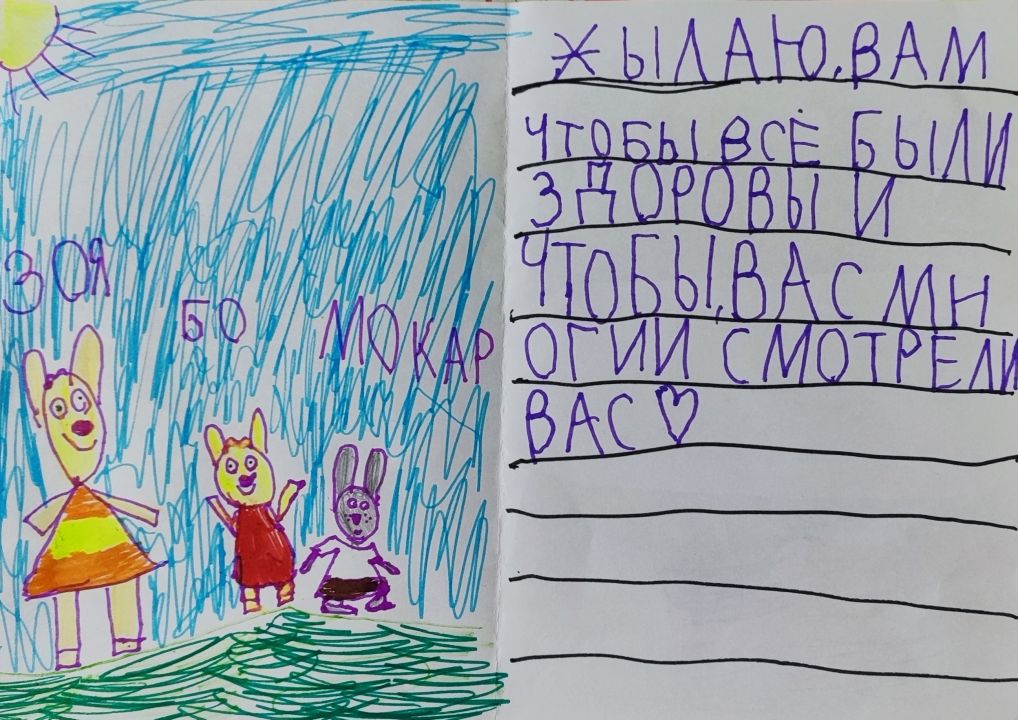 ЗОЯ
БО
МОКАР
ЖЫЛАЮ,ВАМ
ЧТОБЫ ВСЁ БЫЛИ
ЗДОРОВЫ И
ЧТОБЫ,ВАС МН
ОГИИ СМОТРЕЛИ
ВАС♡